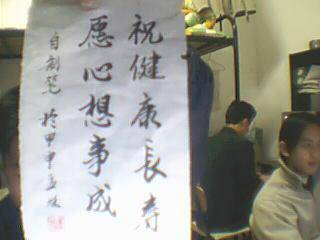 祝健康長寿
愿心想事成
自制笔 於甲申孟